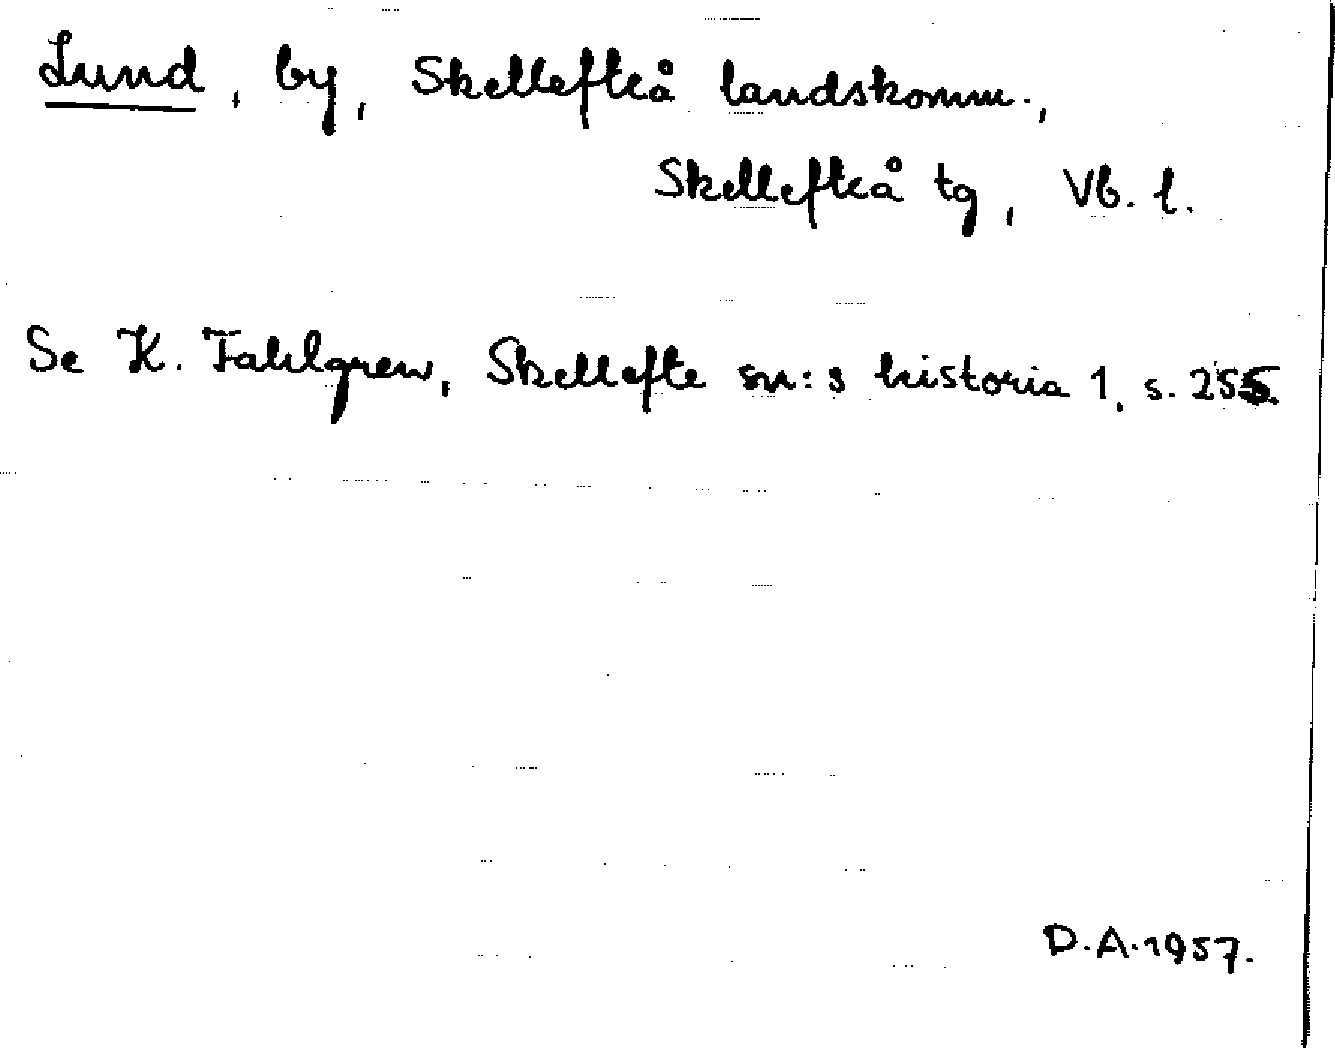 Lund, by, Skellefteå landskomm.,
Skellefteå tg, Vb. l.
Se K. Fahlgren, Skellefte sn:s historia 1, s. 255.
D.A. 1957.